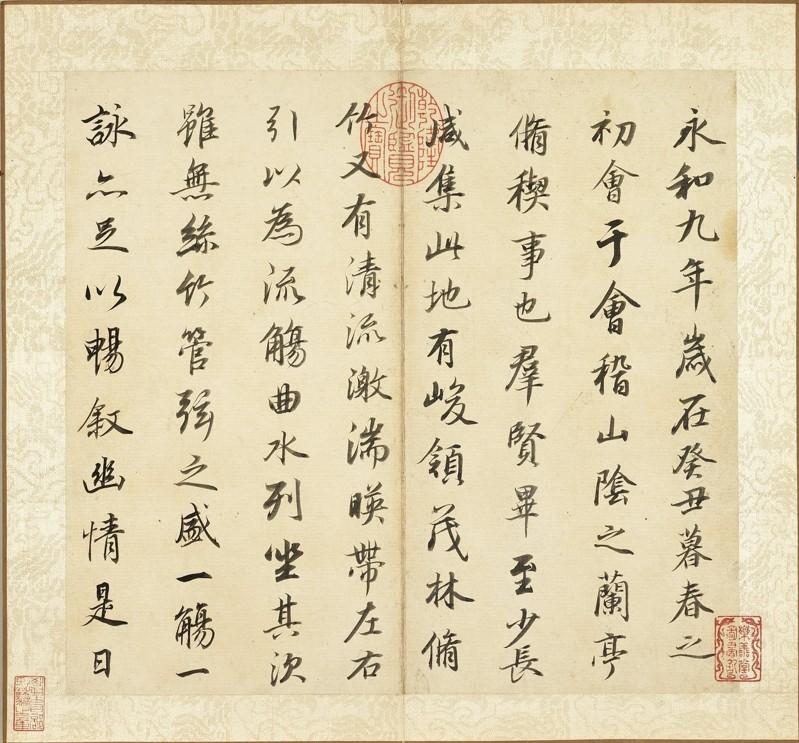 永和九年歲在癸丑暮春之
初會于會稽山陰之蘭亭
脩稧事也羣賢畢至少長
咸集此地有峻領茂林脩
竹又有清流激湍暎帶左右
引以為流觴曲水列坐其次
雖無絲竹管弦之盛一觴一
詠亦足以暢敘幽情是日
乾隆御覽之寶
樂善堂圖書記